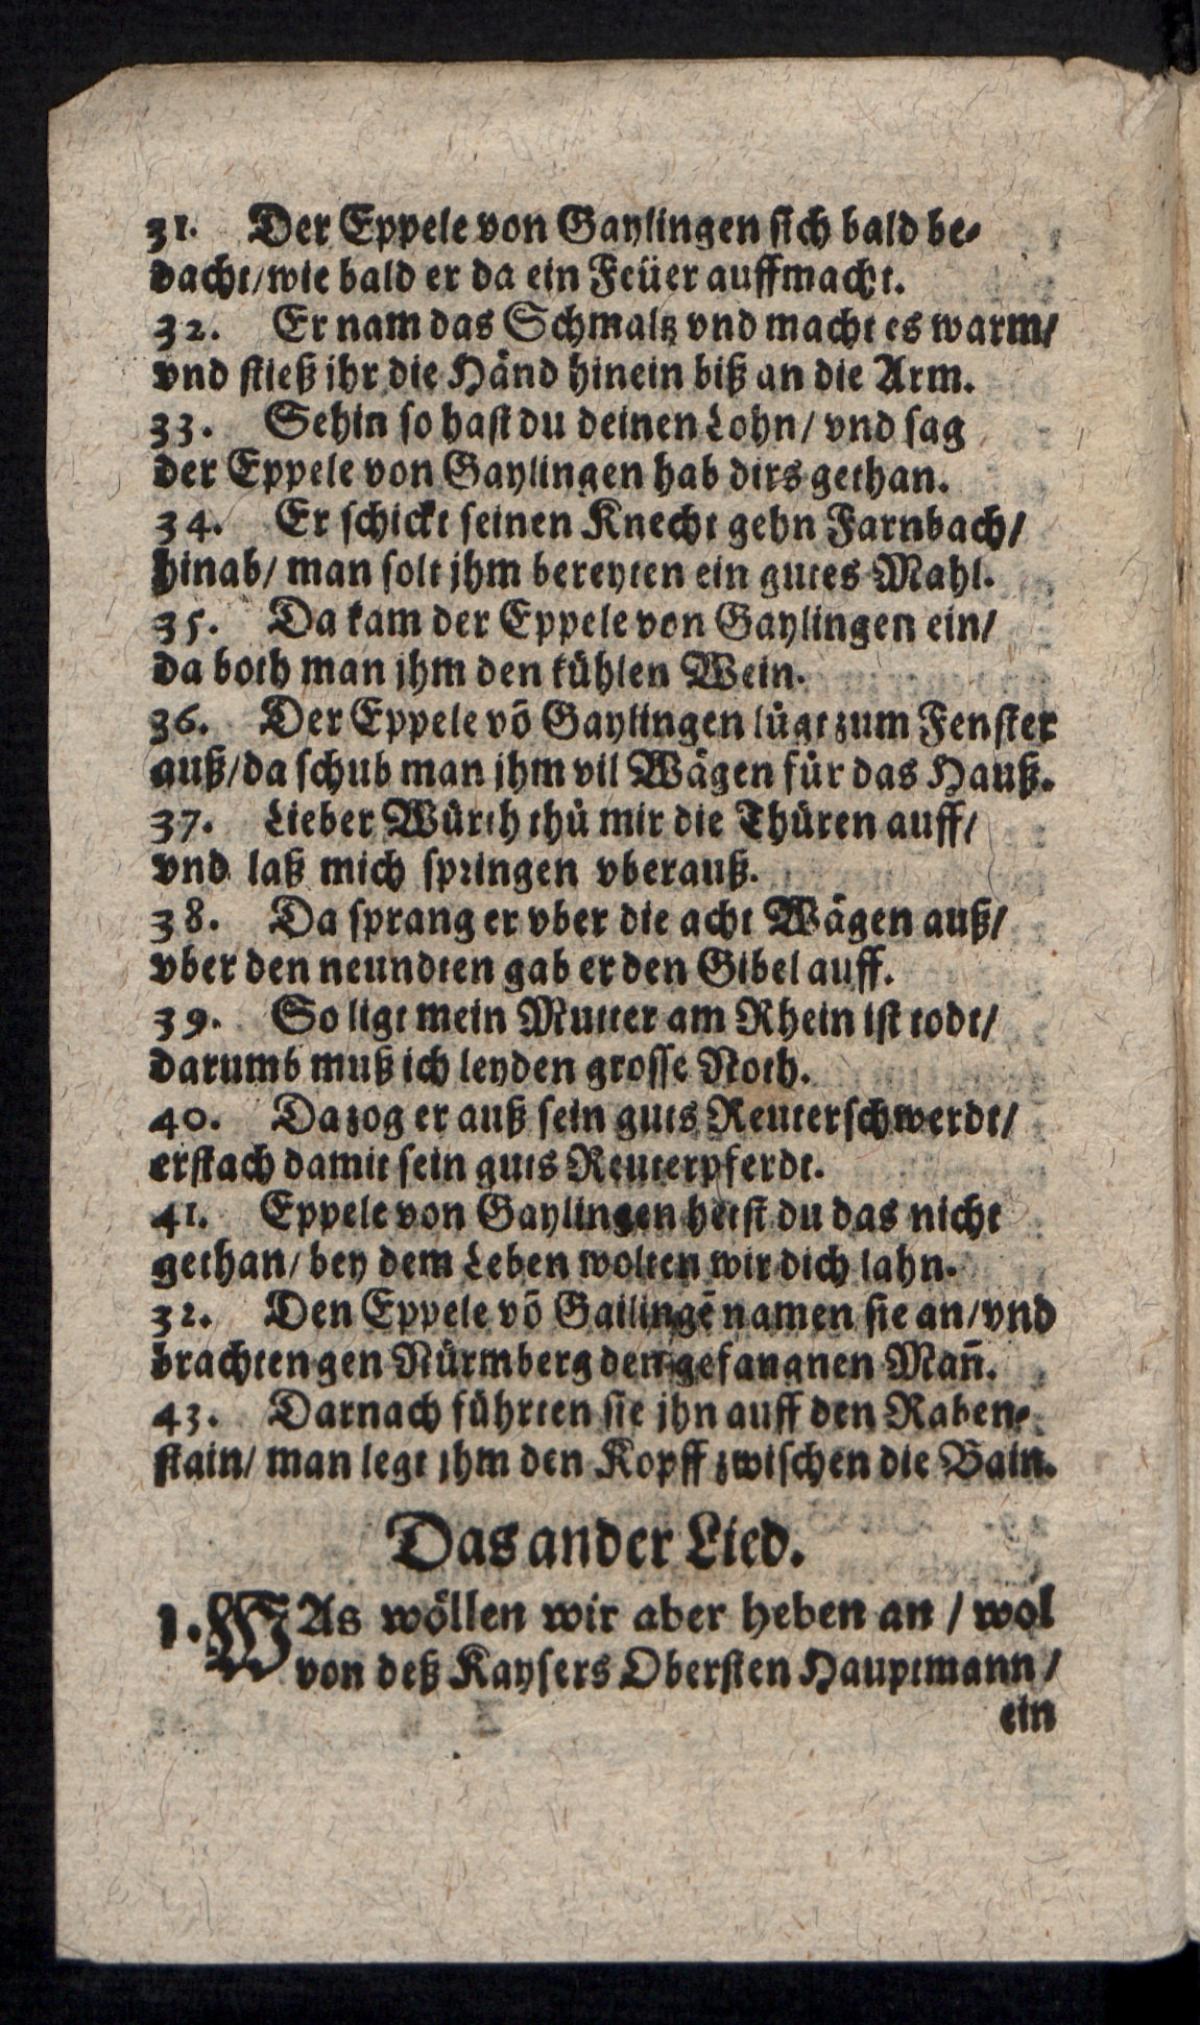 31. Der Eppele von Gaylingen sich bald be-
dacht/wie bald er da ein Feüer auffmacht.
32. Er nam das Schmaltz vnd macht es warm/
vnd stieß jhr die Händ hinein biß an die Arm.
33. Sehin so hast du deinen Lohn/ vnd sag
der Eppele von Gaylingen hab dirs gethan.
34. Er schickt seinen Knecht gehn Farnbach/
hinab/ man solt jhm bereyten ein gutes Mahl.
35. Da kam der Eppele von Gaylingen ein/
da both man jhm den kühlen Wein.
36. Der Eppele võ Gaylingen lügt zum Fenster
auß/da schub man jhm vil Wägen für das Hauß.
37. Lieber Würth thů mir die Thüren auff/
vnd laß mich springen vberauß.
38. Da sprang er vber die acht Wägen auß/
vber den neundten gab er den Gibel auff.
39. So ligt mein Mutter am Rhein ist todt/
darumb muß ich leyden grosse Noth.
40. Da zog er auß sein guts Reuterschwerdt/
erstach damit sein guts Reuterpferdt.
41. Eppele von Gaylingen hetst du das nicht
gethan/ bey dem Leben wolten wir dich lahn.
32. Den Eppele võ Gailingẽ namen sie an/vnd
brachten gen Nürmberg den gefangnen Mañ.
43. Darnach führten sie jhn auff den Raben-
stain/ man legt jhm den Kopff zwischen die Bain.
Das ander Lied.
1. WAs wöllen wir aber heben an / wol
von deß Kaysers Obersten Hauptmann/
ein